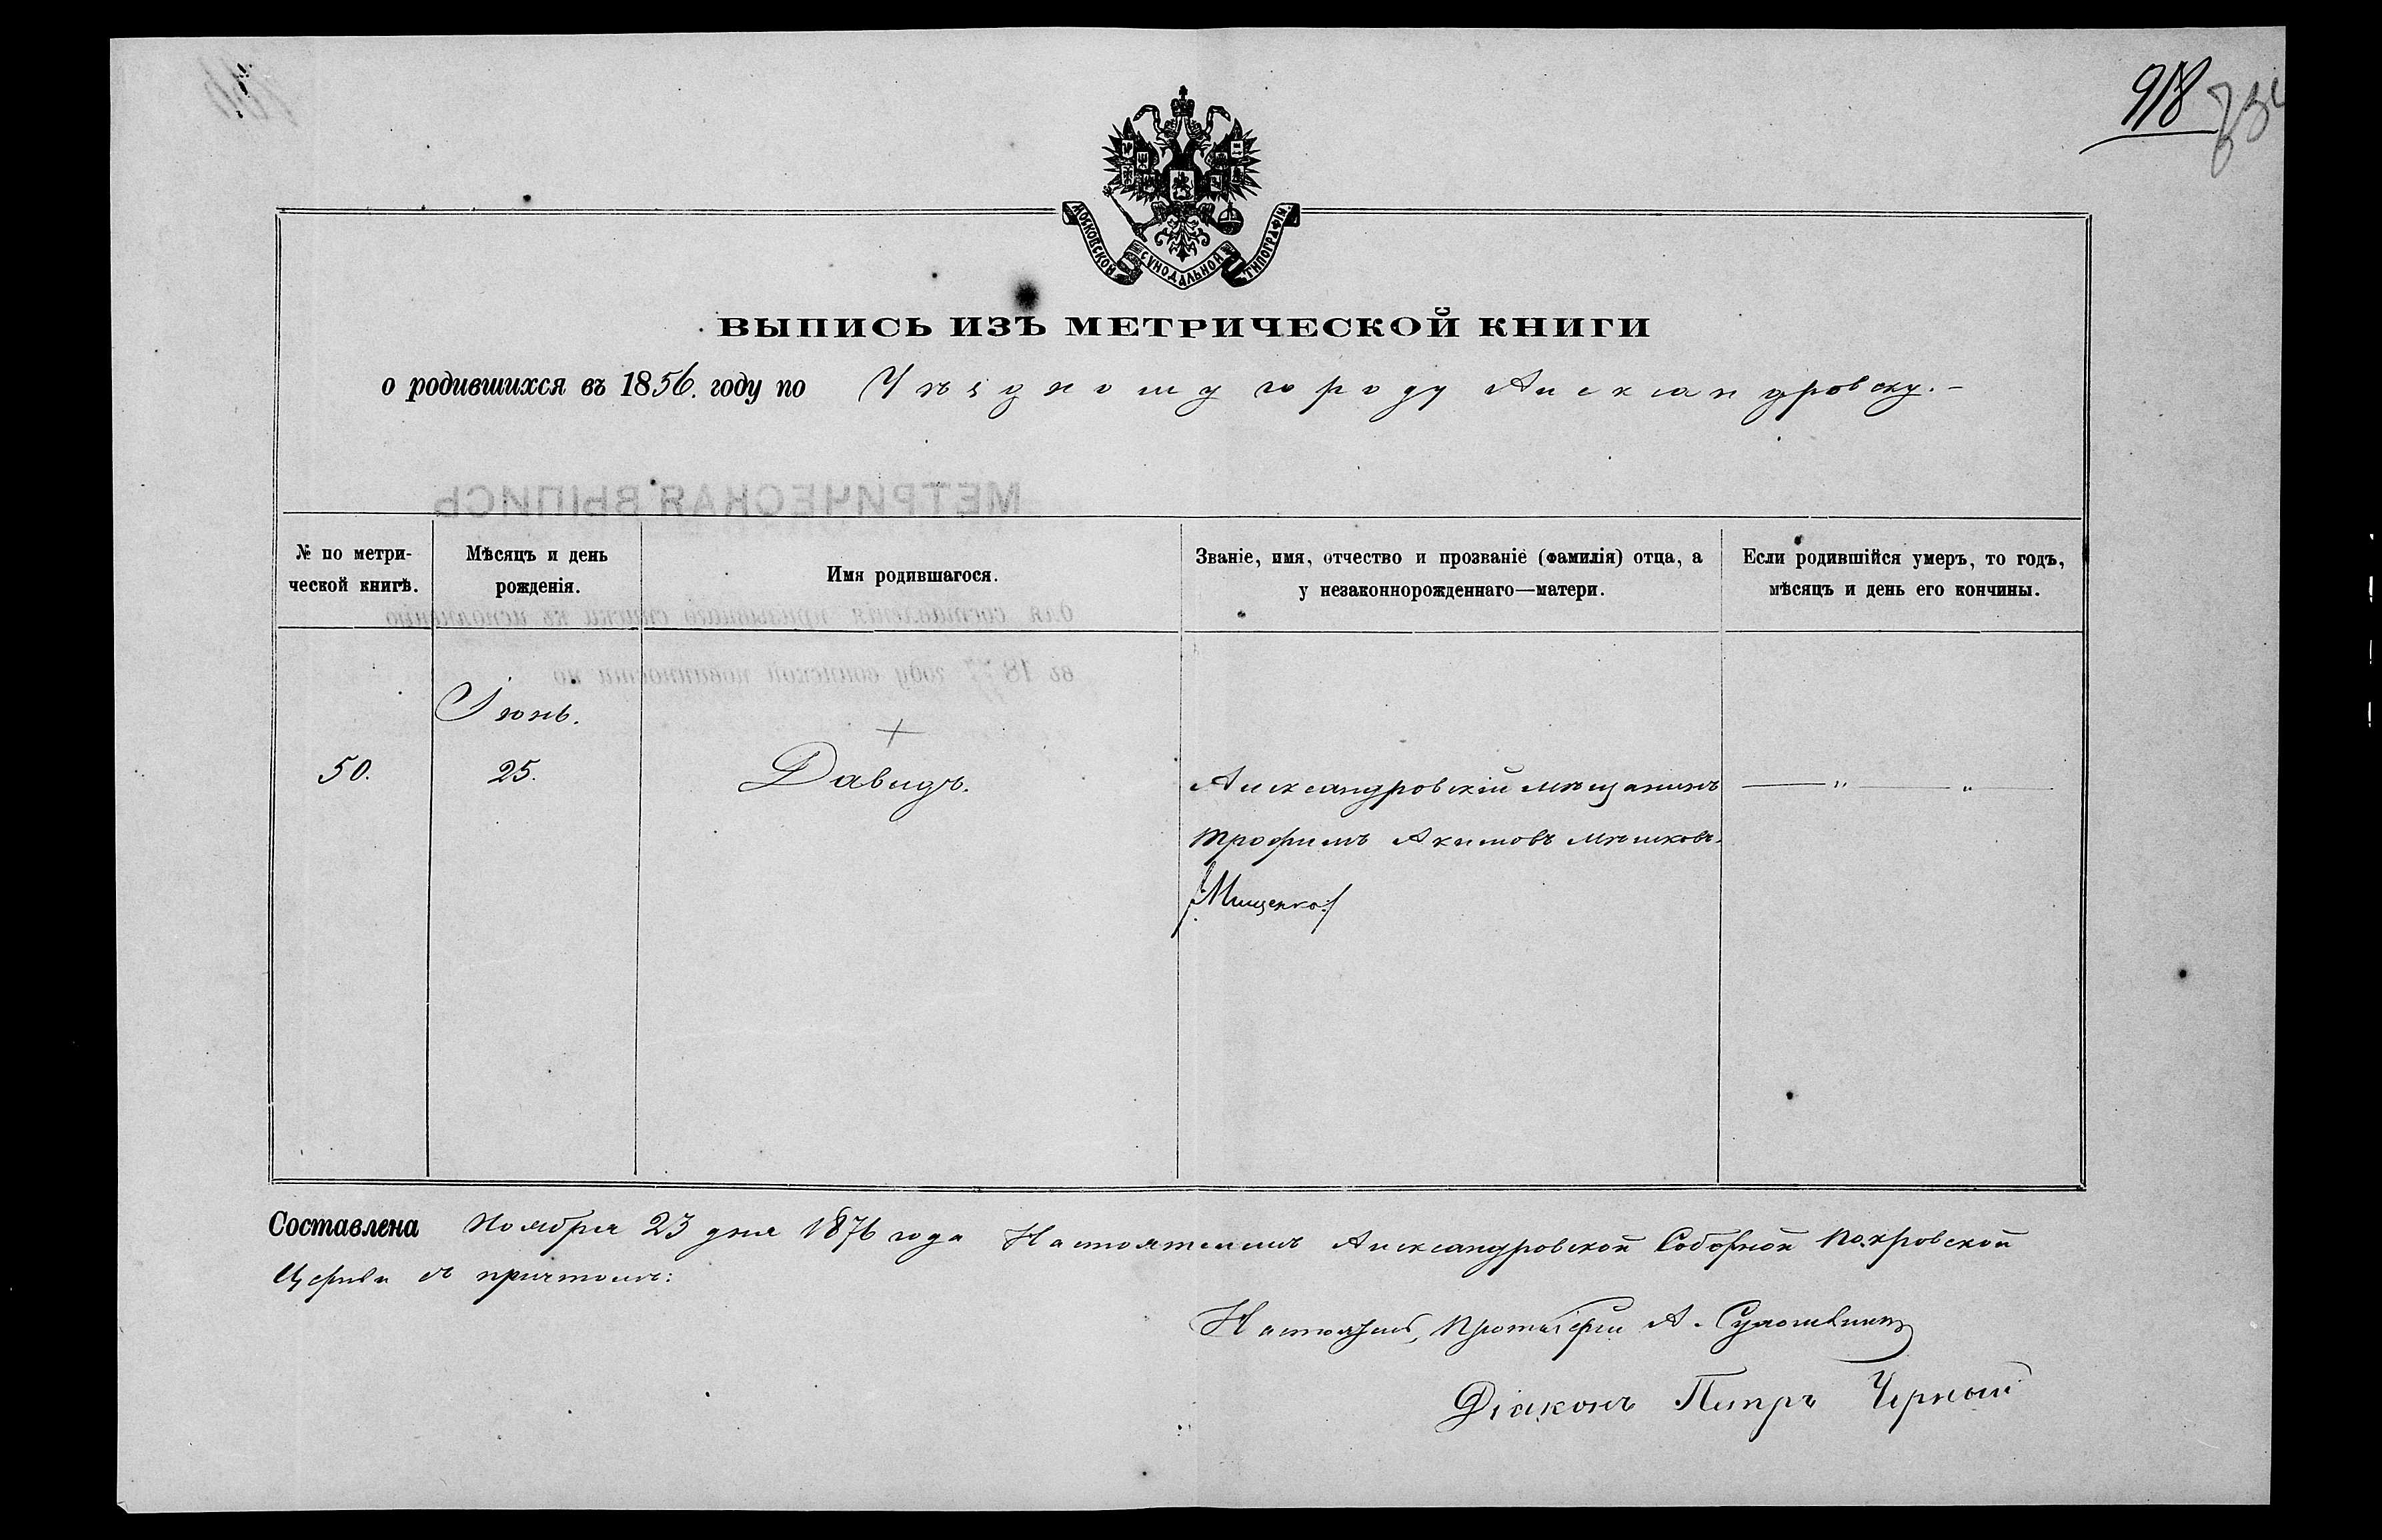 918
МОСКОВСКОЙ СУНОДАЛЬНОЙ ТИПОГРАФІИ.
ВЫПИСЬ ИЗЪ МЕТРИЧЕСКОЙ КНИГИ
о родившихся въ 1856. году по Уѣздному городу Александровску. –
МЕТРИЧЕСКАЯ ВЫПИСЬ
№ по метри-
ческой книгѣ.
Мѣсяцъ и день
рожденія.
Имя родившагося.
Званіе, имя, отчество и прозваніе (фамилія) отца, а
у незаконнорожденнаго—матери.
Если родившійся умеръ, то годъ,
мѣсяцъ и день его кончины.
для составленія призывнаго списка къ исполненію
въ 1877 году воинской повинности по
Іюнь.
50.
25.
Давидъ.
Александровскій мѣщанинъ
Трофимъ Акимовъ Мѣшковъ.
/:Мищенко:/
— " — " —
Составлена Ноября 23 дня 1876 года Настоятелемъ Александровской Соборной Покровской
Церкви съ причтомъ:
Настоятель, Протоіерей А.
Діаконъ Петръ Черный